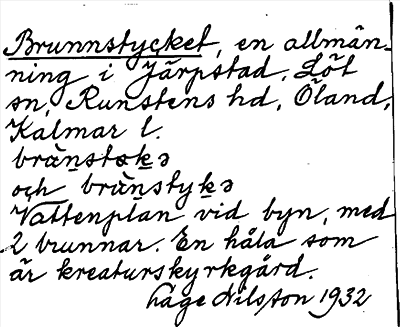 Brunnstycket, en allmän-
ning i Järpstad, Löt
sn, Runstens hd, Öland,
Kalmar l.
brùn̲stək̲ə
och brùn̲styk̲ə
Vattenplan vid byn, med
2 brunnar. En håla som
är kreaturskyrkgård.
Lage Nilsson 1932